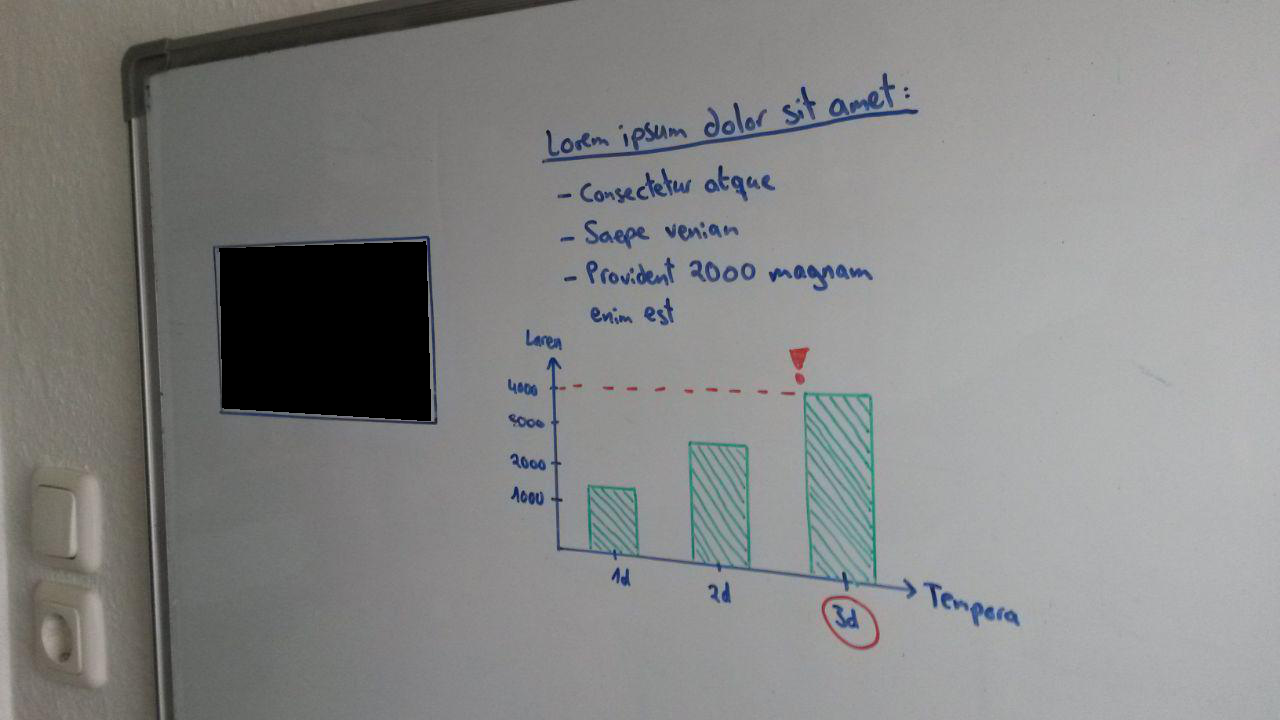 Lorem ipsum dolor sit amet:
- Consectetur atque
- Saepe veniam
- Provident 2000 magnam
enim est
Laren
4000
3000
2000
1000
1d
2d
3d
Tempora
!